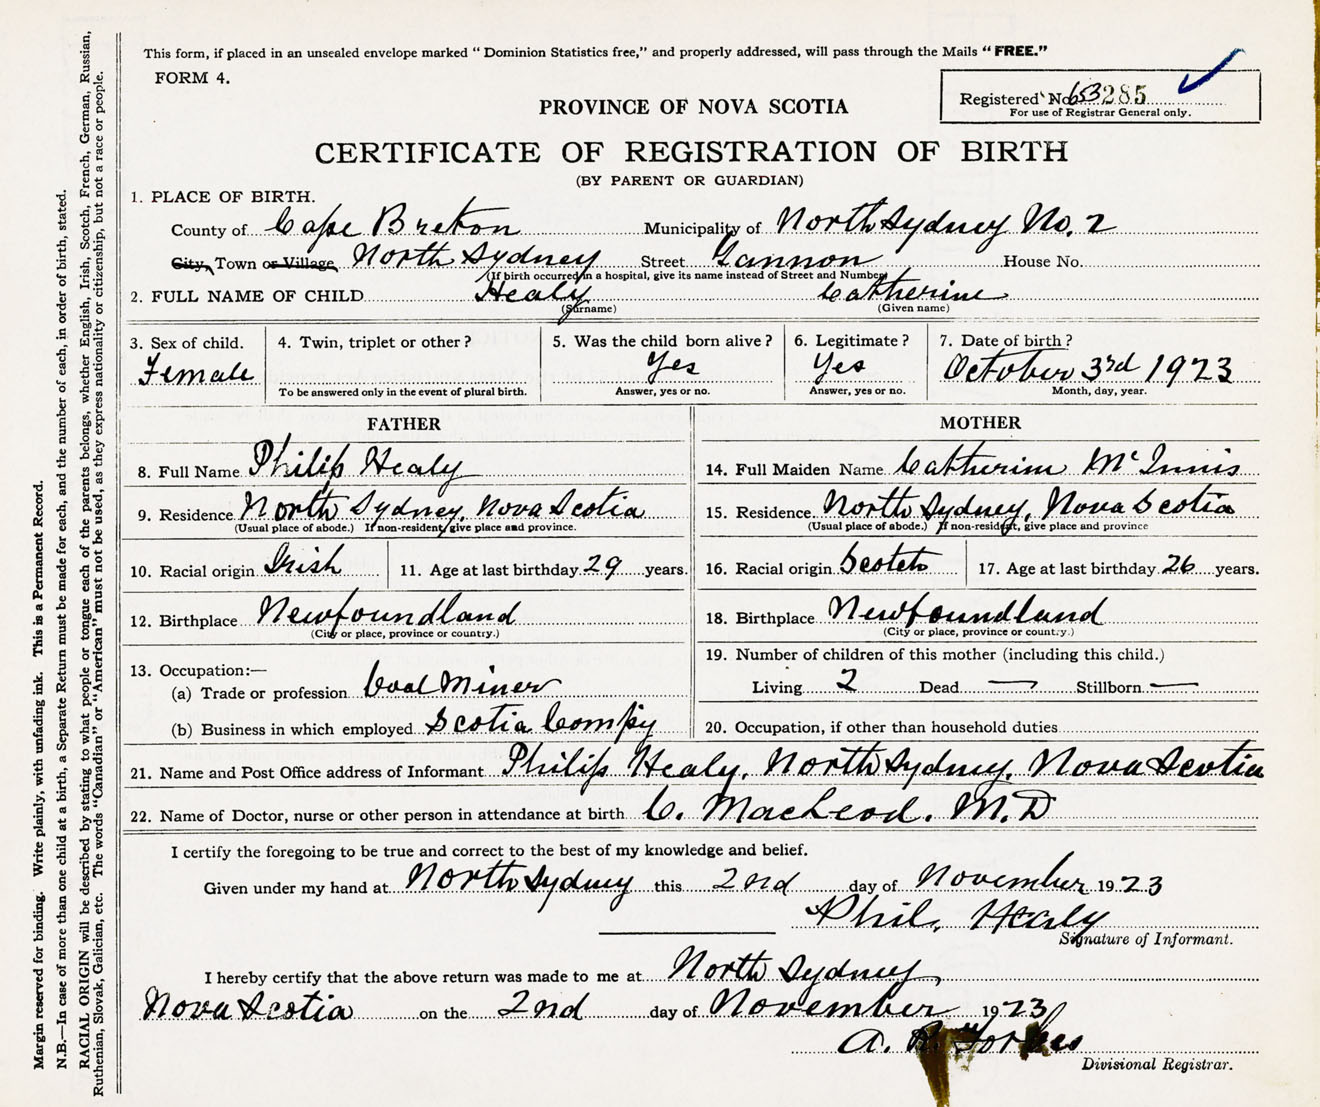 This form, if placed in an unsealed envelope marked "Dominion Statistics free," and properly addressed, will pass through the Mails "FREE."
FORM 4.
Registered No. 653285
For use of Registrar General only.
PROVINCE OF NOVA SCOTIA
CERTIFICATE OF REGISTRATION OF BIRTH
(BY PARENT OR GUARDIAN)
1. PLACE OF BIRTH.
County of Cape Breton Municipality of North Sydney No. 2
City, Town or Village North Sydney Street Gannon House No.
(If birth occurred in a hospital, give its name instead of Street and Number)
2. FULL NAME OF CHILD Healy Catherine
(Surname) (Given name)
3. Sex of child. 4. Twin, triplet or other? 5. Was the child born alive? 6. Legitimate? 7. Date of birth?
Female Yes Yes October 3rd 1923
To be answered only in the event of plural birth. Answer, yes or no. Answer, yes or no. Month, day, year.
FATHER
8. Full Name Philip Healy
9. Residence North Sydney, Nova Scotia
(Usual place of abode.) If non-resident, give place and province.
10. Racial origin Irish 11. Age at last birthday 29 years.
12. Birthplace Newfoundland
(City or place, province or country.)
13. Occupation:—
(a) Trade or profession Coal Miner
(b) Business in which employed Scotia Compy
MOTHER
14. Full Maiden Name Catherine McInnis
15. Residence North Sydney, Nova Scotia
(Usual place of abode.) If non-resident, give place and province
16. Racial origin Scotch 17. Age at last birthday 26 years.
18. Birthplace Newfoundland
(City or place, province or country.)
19. Number of children of this mother (including this child.)
Living 2 Dead — Stillborn —
20. Occupation, if other than household duties
21. Name and Post Office address of Informant Philip Healy, North Sydney, Nova Scotia
22. Name of Doctor, nurse or other person in attendance at birth C. MacLeod. M.D
I certify the foregoing to be true and correct to the best of my knowledge and belief.
Given under my hand at North Sydney this 2nd day of November 1923
Phil. Healy
Signature of Informant.
I hereby certify that the above return was made to me at North Sydney,
Nova Scotia on the 2nd day of November 1923
A. R. Forbes
Divisional Registrar.
Margin reserved for binding. Write plainly, with unfading ink. This is a Permanent Record.
N.B.—In case of more than one child at a birth, a Separate Return must be made for each, and the number of each, in order of birth, stated.
RACIAL ORIGIN will be described by stating to what people or tongue each of the parents belongs, whether English, Irish, Scotch, French, German, Russian,
Ruthenian, Slovak, Galician, etc. The words "Canadian" or "American" must not be used, as they express nationality or citizenship, but not a race or people.